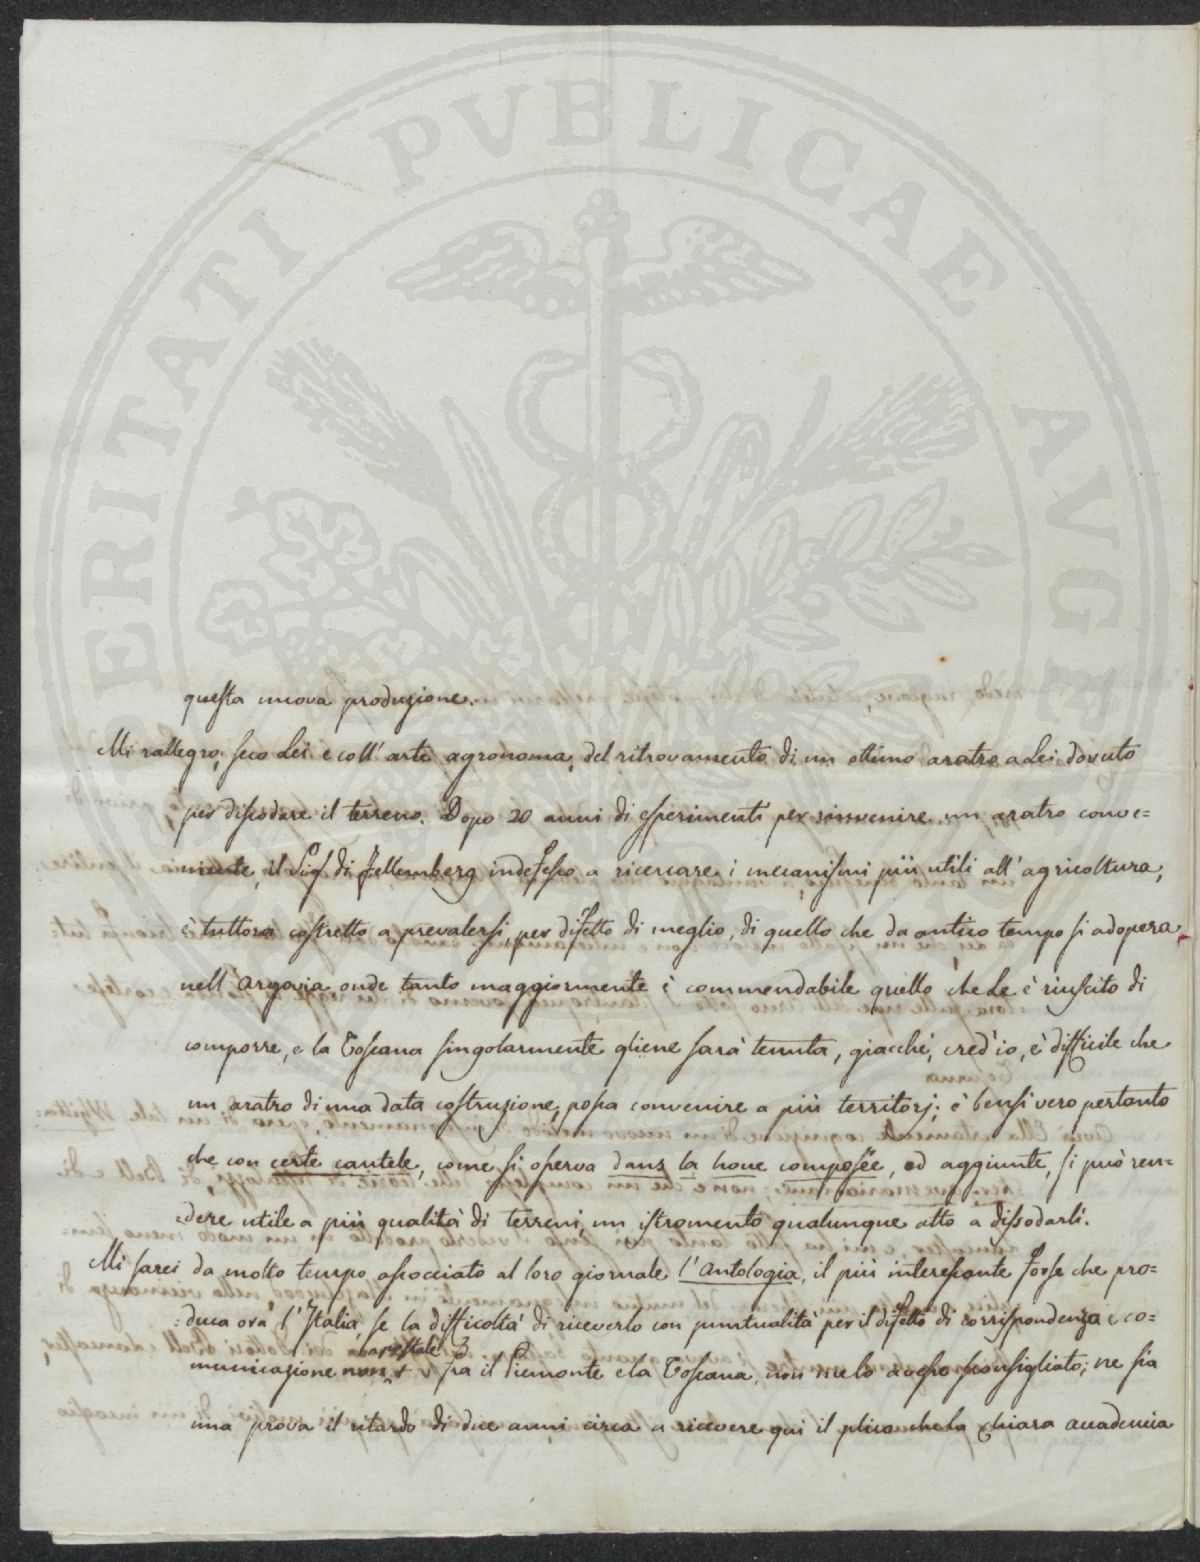 PERITATI PUBLICAE AUGE
questa nuova produzione.
Mi rallegro, seco Lei e coll' arte agronoma, del ritrovamento di un ottimo aratro a Lei dovuto
per dissodare il terreno. Dopo 20 anni di esperimenti per rinvenire un aratro conve=
niente, il Sig di Fellemberg indefesso a ricercare i mecanismi più utili all' agricoltura,
è tuttora costretto a prevalersi, per difetto di meglio, di quello che da antico tempo si adopera
nell' Argovia onde tanto maggiormente è commendabile quello che Le è riuscito di
comporre, e la Toscana singolarmente gliene sarà tenuta, giacchè, cred' io, è difficile che
un aratro di una data costruzione, possa convenire a più territorj; è bensì vero pertanto
che con certe cautele, come si osserva dans la houe composée, ed aggiunte, si può ren=
=dere utile a più qualità di terreni un istromento qualunque atto a dissodarli.
Mi sarei da molto tempo associato al loro giornale l'Antologia, il più interessante forse che pro=
=duca ora l'Italia, se la difficoltà di riceverlo con puntualità per il difetto di corrispondenza e co=
municazione non fra il Piemonte e la Toscana, non me lo avesse sconsigliato; ne sia
una prova il ritardo di due anni circa a ricevere qui il plico che la chiara accademia